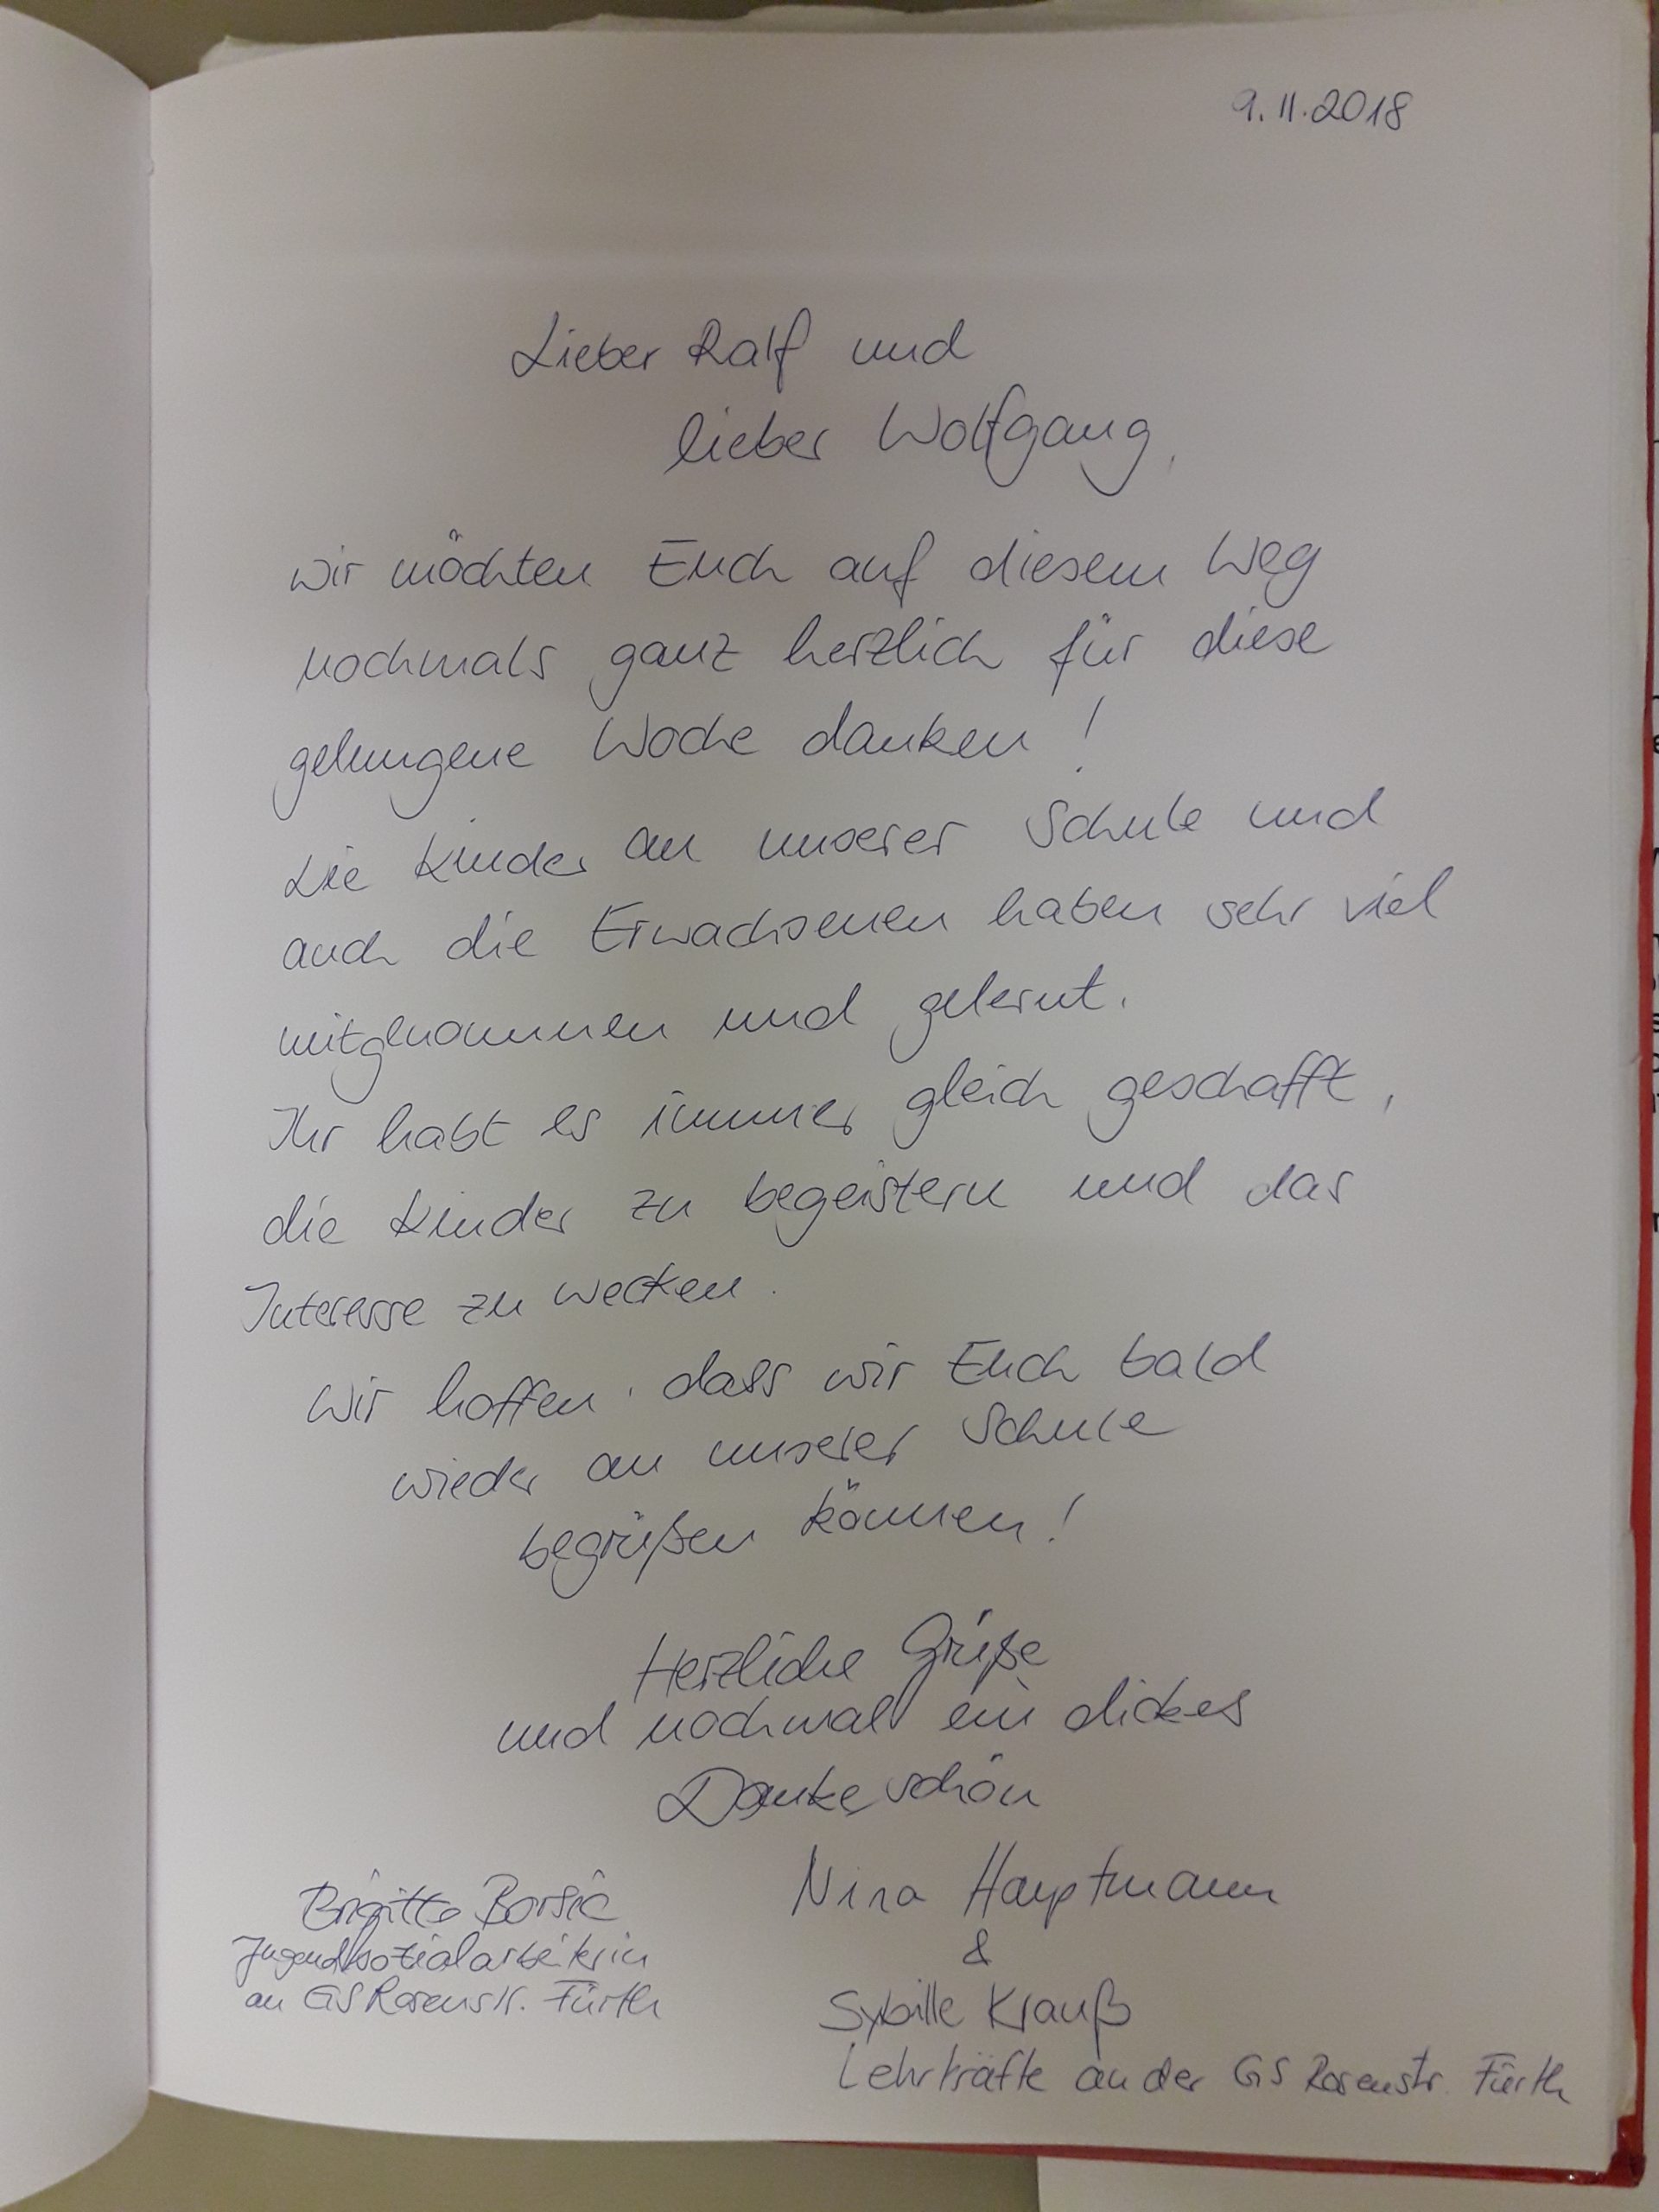 9.11.2018
Lieber Ralf und
lieber Wolfgang,
wir möchten Euch auf diesem Weg
nochmals ganz herzlich für diese
gelungene Woche danken!
Die Kinder an unserer Schule und
auch die Erwachsenen haben sehr viel
mitgenommen und gelernt.
Ihr habt es immer gleich geschafft,
die Kinder zu begeistern und das
Interesse zu wecken.
Wir hoffen, dass wir Euch bald
wieder an unserer Schule
begrüßen können!
Herzliche Grüße
und nochmal ein dickes
Dankeschön
Nina Hauptmann
&
Sybille Krauß
Lehrkräfte an der GS Rosenstr. Fürth
Brigitte
Jugendsozialarbeiterin
an GS Rosenstr. Fürth